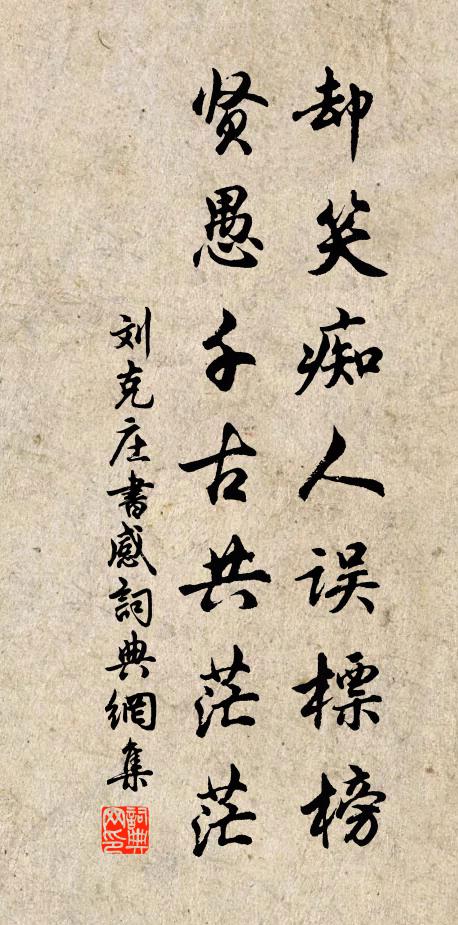 却笑痴人误標榜
贤愚千古共茫茫
刘克庄書感詞典網集
詞典网印